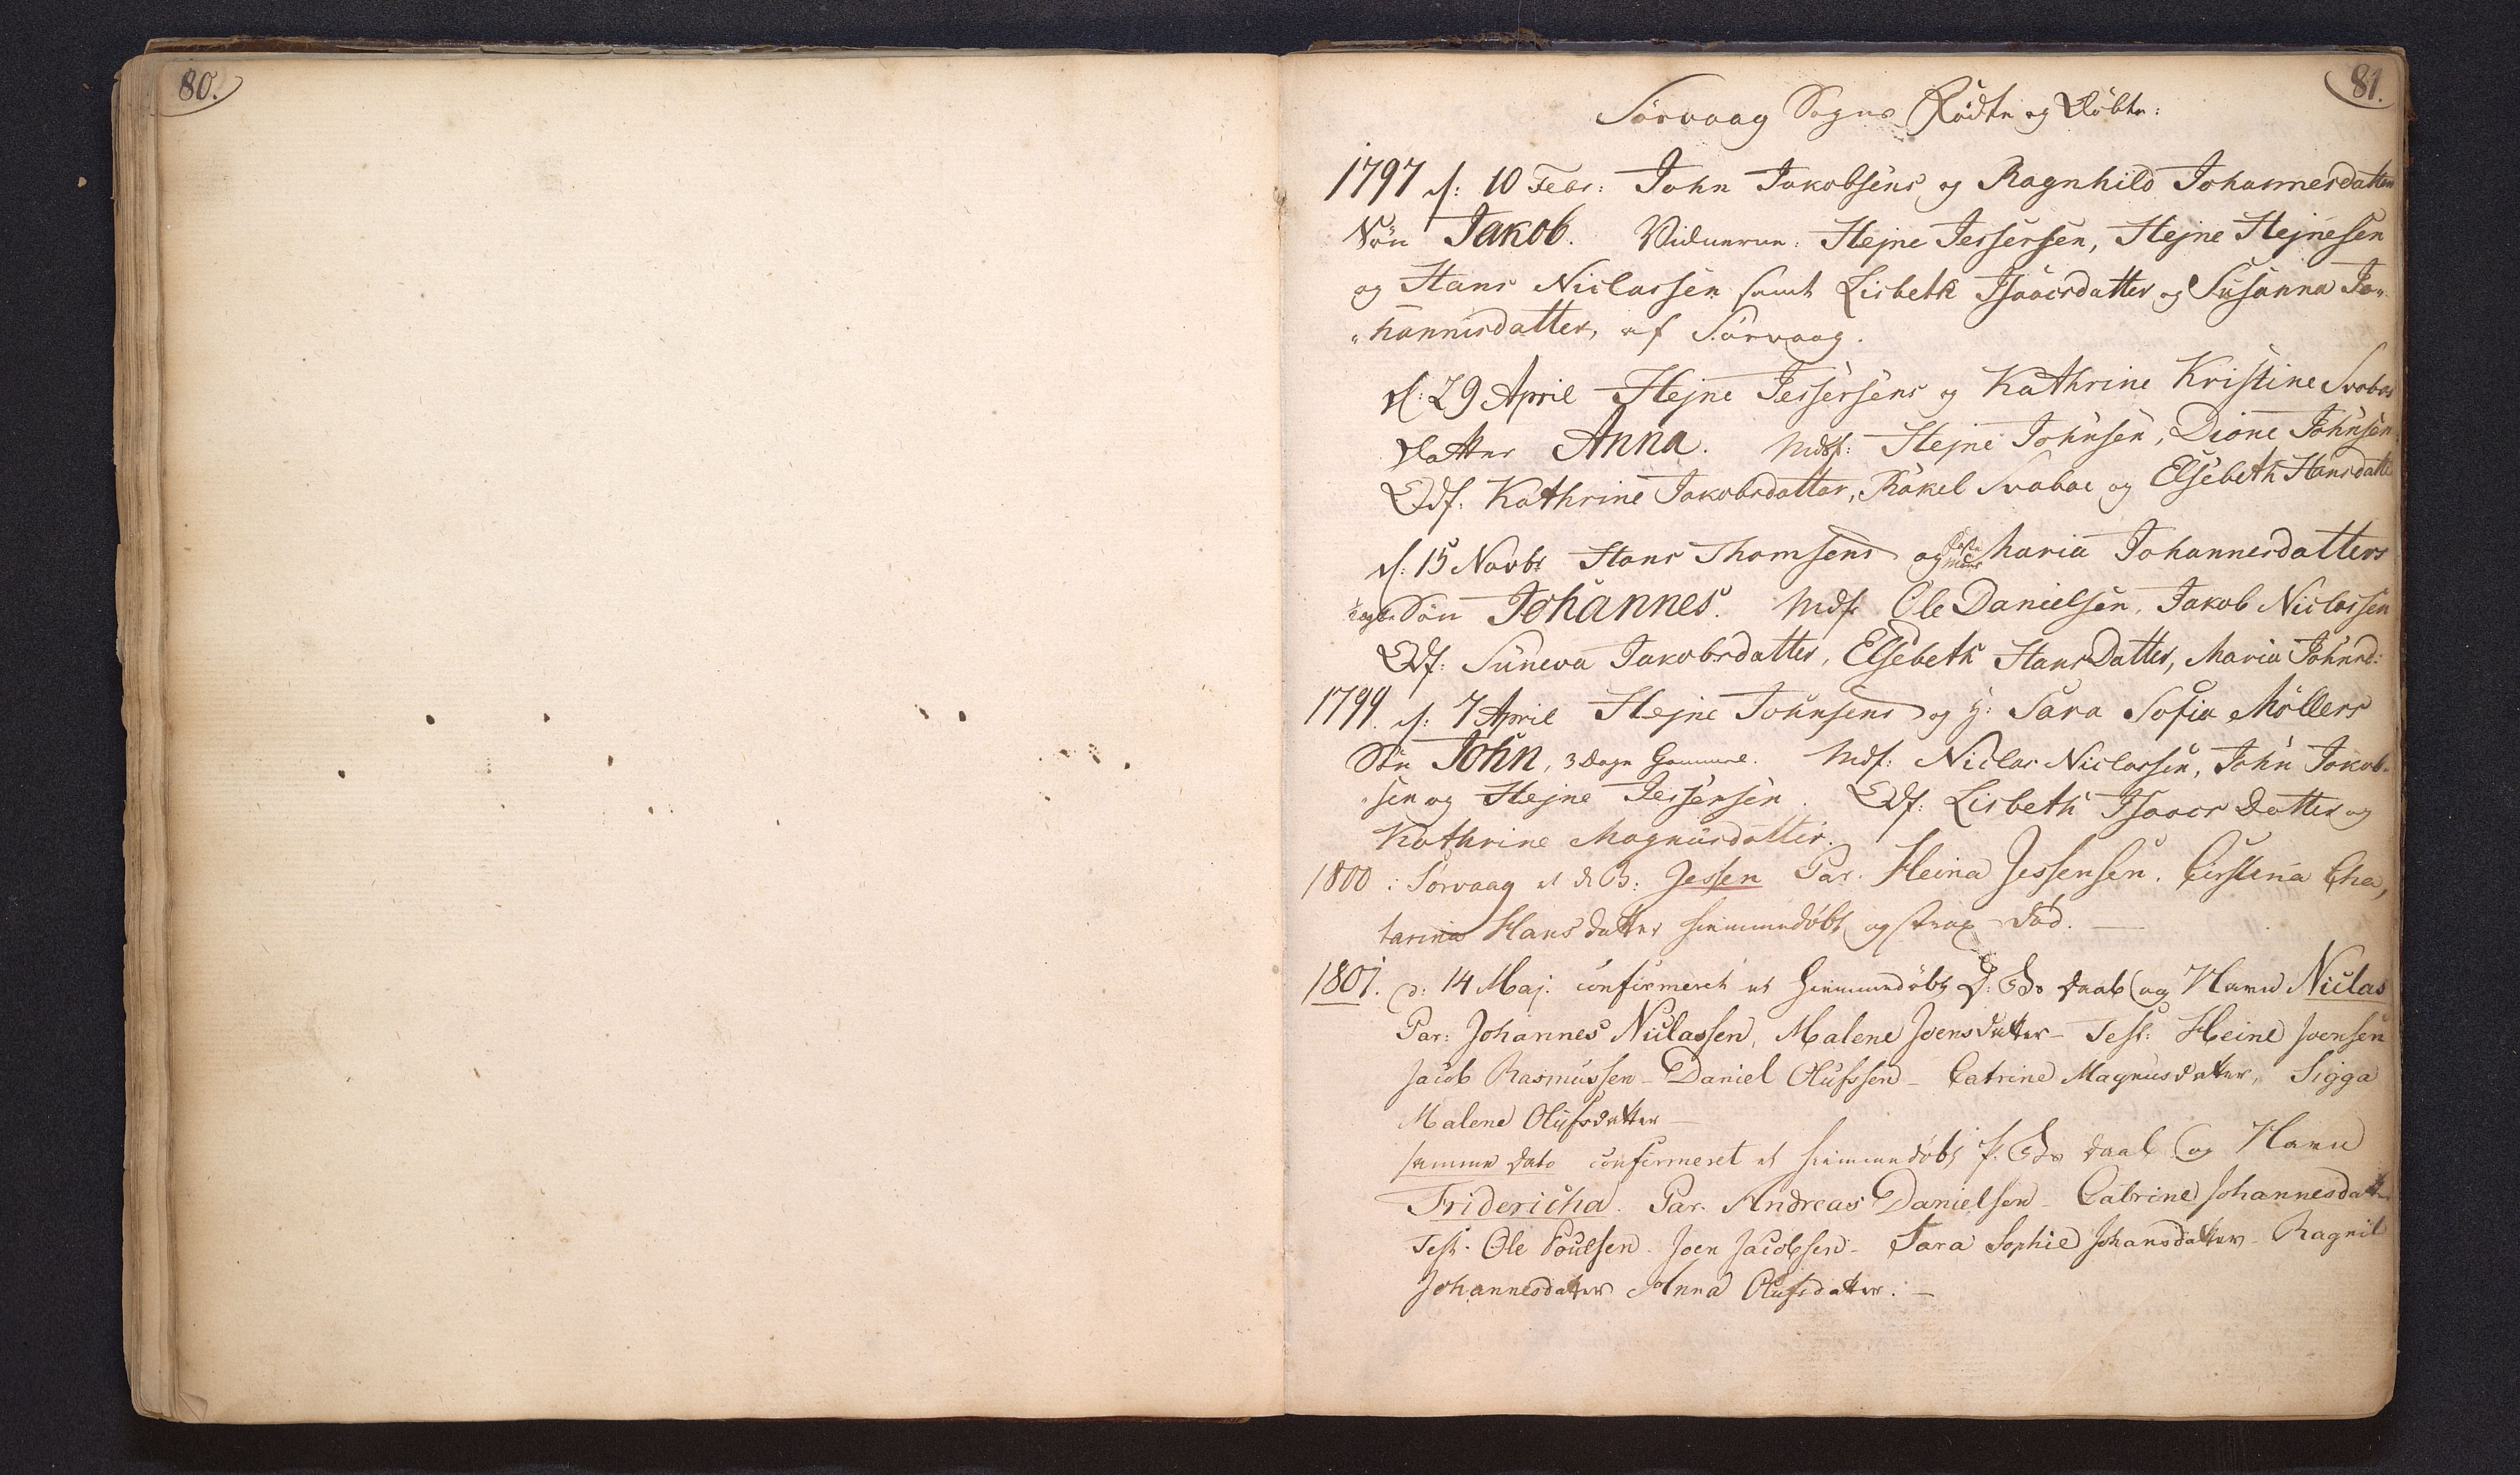 80.
81.
Sörvaag Sogns Födte og Döbte:
1797 d: 10 Febr: John Jakobsens og Ragnhild Johannesdatters
Sön Jakob. Vidnerne: Hejne Jessersen, Hejne Hejnesen
og Hans Niclassen samt Lisbeth Isaacsdatter og Susanna Jo„
„hannisdatter, af Sörvaag.
d: 29 April Hejne Jessersens og Kathrine Kristine Svabos
Datter Anna. Mdf: Hejne Johnsen, Dione Johnsen
Qdf. Kathrine Jakobsdatter, Rakel Svaboe og Elsebeth Hansdatte
d: 15 Novbr Hans Thomsens og Maria Johannesdatters
Sön Johannes. Mdf. Ole Danielsen, Jakob Niclassen
Qdf: Suneva Jakobsdatter, Elsebeth HansDatter, Maria Johnsd:
1799. d: 7 April Hejne Johnsens og H: Sara Sofia Möllers
Sön John, 3 Dage Gammel. Mdf: Niclas Niclassen, John Jakob„
„sen og Hejne Jessensen. Qdf: Lisbeth Isaacs Datter og
Kathrine Magnusdatter.
1800 i Sörvaag et d B: Jessen Par. Heina Jessensen. Cirstena Cha,
tarina Hans datter hiemmedöbt og strax död. —
1801. d: 14 Maj. confirmeret et hiemmedöbt D: Bs daab og Navn Niclas
Par: Johannes Niclassen, Malene Joensdatter - Test: Heine Joensen
Jacob Rasmussen - Daniel Olufssen - Catrine Magnusdatter, Sigga
Malene Olufsdatter —
samme dato confirmeret et hiemmedöbt P. Bs daab og Navn
Fridericha. Par. Andreas Danielsen - Catrine Johannesdatt
Test. Ole Poulsen - Joen Jacobsen - Sara Sophie Johansdatter - Ragnil
Johannesdatter Anna Olufsdatter. —